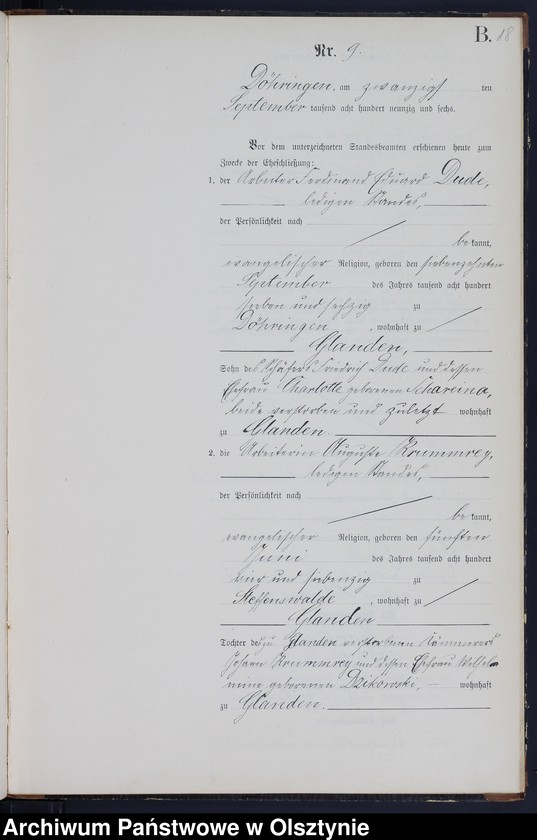 B. 18
Nr. 9.
Döhringen, am zwanzigsten
September tausend acht hundert neunzig und sechs.
Vor dem unterzeichneten Standesbeamten erschienen heute zum
Zwecke der Eheschließung:
1. der Arbeiter Ferdinand Eduard Dude,
ledigen Standes,
der Persönlichkeit nach
bekannt,
evangelischer Religion, geboren den siebenzehnten
September des Jahres tausend acht hundert
sieben und sechzig zu
Döhringen, wohnhaft zu
Glanden,
Sohn des Schäfers Friedrich Dude und dessen
Ehefrau Charlotte geborenen Schareina,
beide verstorben und zuletzt wohnhaft
zu Glanden.
2. die Arbeiterin Auguste Krummrey,
ledigen Standes,
der Persönlichkeit nach
bekannt,
evangelischer Religion, geboren den fünften
Juni des Jahres tausend acht hundert
vier und siebenzig zu
Steffenswalde, wohnhaft zu
Glanden
Tochter des zu Glanden verstorbenen Kämmerers
Johann Krummrey und dessen Ehefrau Wilhel-
mine geborenen Dzikowski, wohnhaft
zu Glanden.
Archiwum Państwowe w Olsztynie